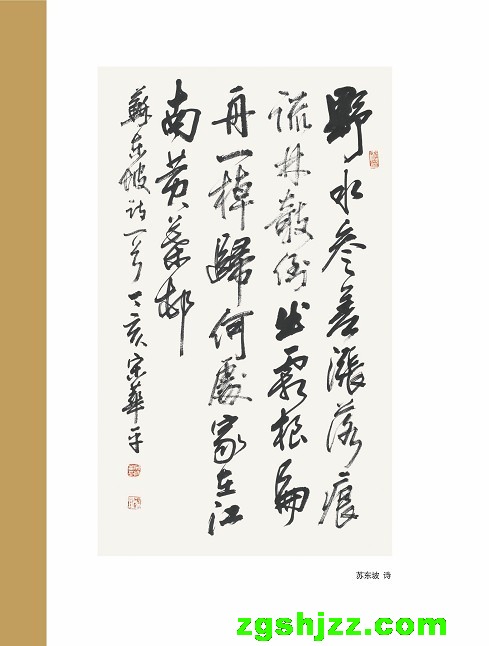 野水参差漲落痕
疏林敧倒出霜根扁
舟一棹歸何處家在江
南黄葉邨
蘇东坡诗一首 丁亥宋華平
苏东坡 诗
zgshjzz.com